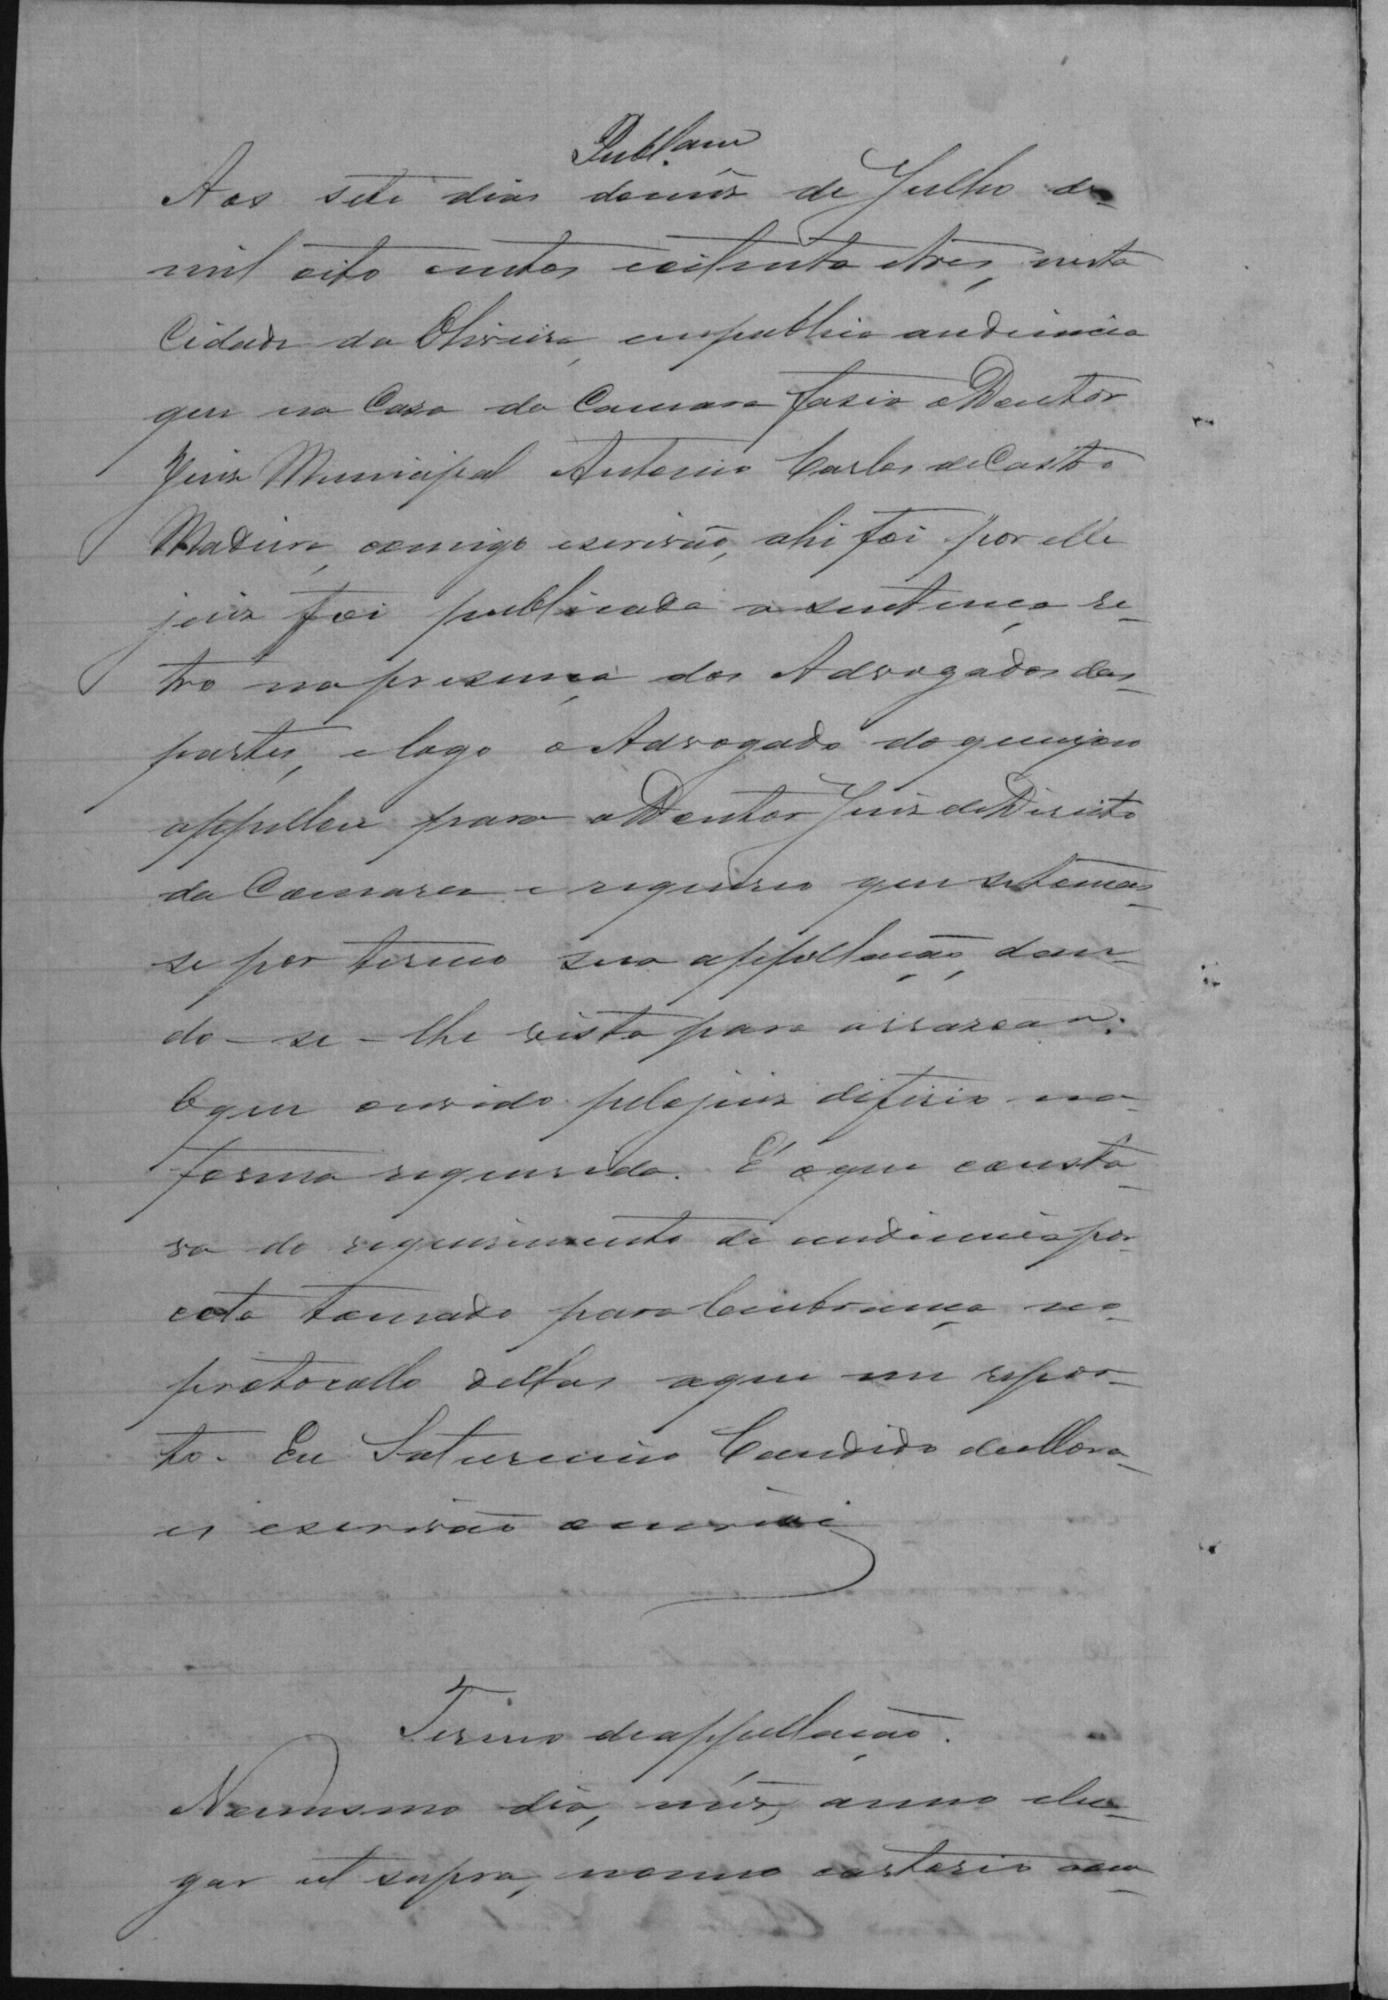 Publ.am
Aos sete dias do mez de Julho de
mil oito centos e oitenta e tres, nesta
Cidade da Oliveira, em publica audiencia
que na Casa da Camara fasia o Doutor
Juiz Municipal Antonio Carlos de Castro
Madeira, comigo escrivão, ahi foi por elle
juiz foi publicada a sentença re-
tro na presença dos Advogados das
partes, e logo o Advogado do queixoso
appellou para o Doutor Juiz de Direito
da Comarca e requereu que se tomas-
se por termo sua appellação, dan-
do-se-lhe vista para arrazoar.
O que ouvido pelo juiz diferio na
forma requerida. É o que consta-
va do requerimento de audiencia por
cota tomado para lembrança no
protocollo dellas aque me repor-
to. Eu Saturnino Candido de Mora-
es escrivão o escrevi
Termo de appellação.
No mesmo dia, mez, anno e lu-
gar ut supra, no meu cartorio com-